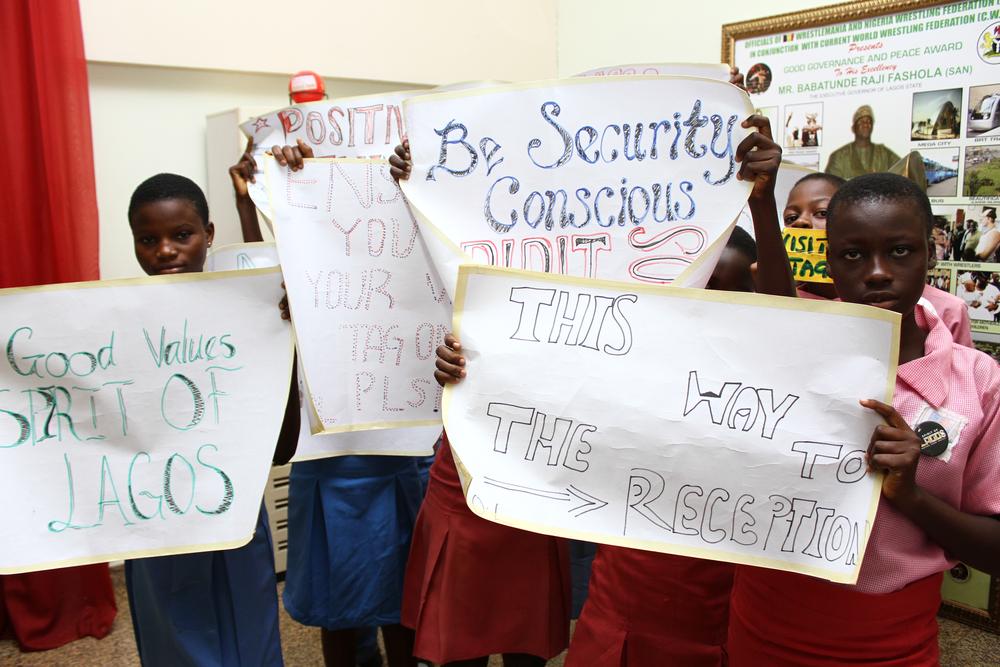 Good Values
SPIRIT OF
LAGOS
POSITI
ENS
YOU
YOUR
TAG O
PLS
Be Security
Conscious
THIS
WAY TO
THE
RECEPTION
VISIT
TAG
OFFICIALS OF WRESTLEMANIA AND NIGERIA WRESTLING FEDERATION
IN CONJUNCTION WITH CURRENT WORLD WRESTLING FEDERATION (C.W.
Presents
GOOD GOVERNANCE AND PEACE AWARD
To His Excellency
MR. BABATUNDE RAJI FASHOLA (SAN)
THE EXECUTIVE GOVERNOR OF LAGOS STATE
MEGA CITY
LAGOS